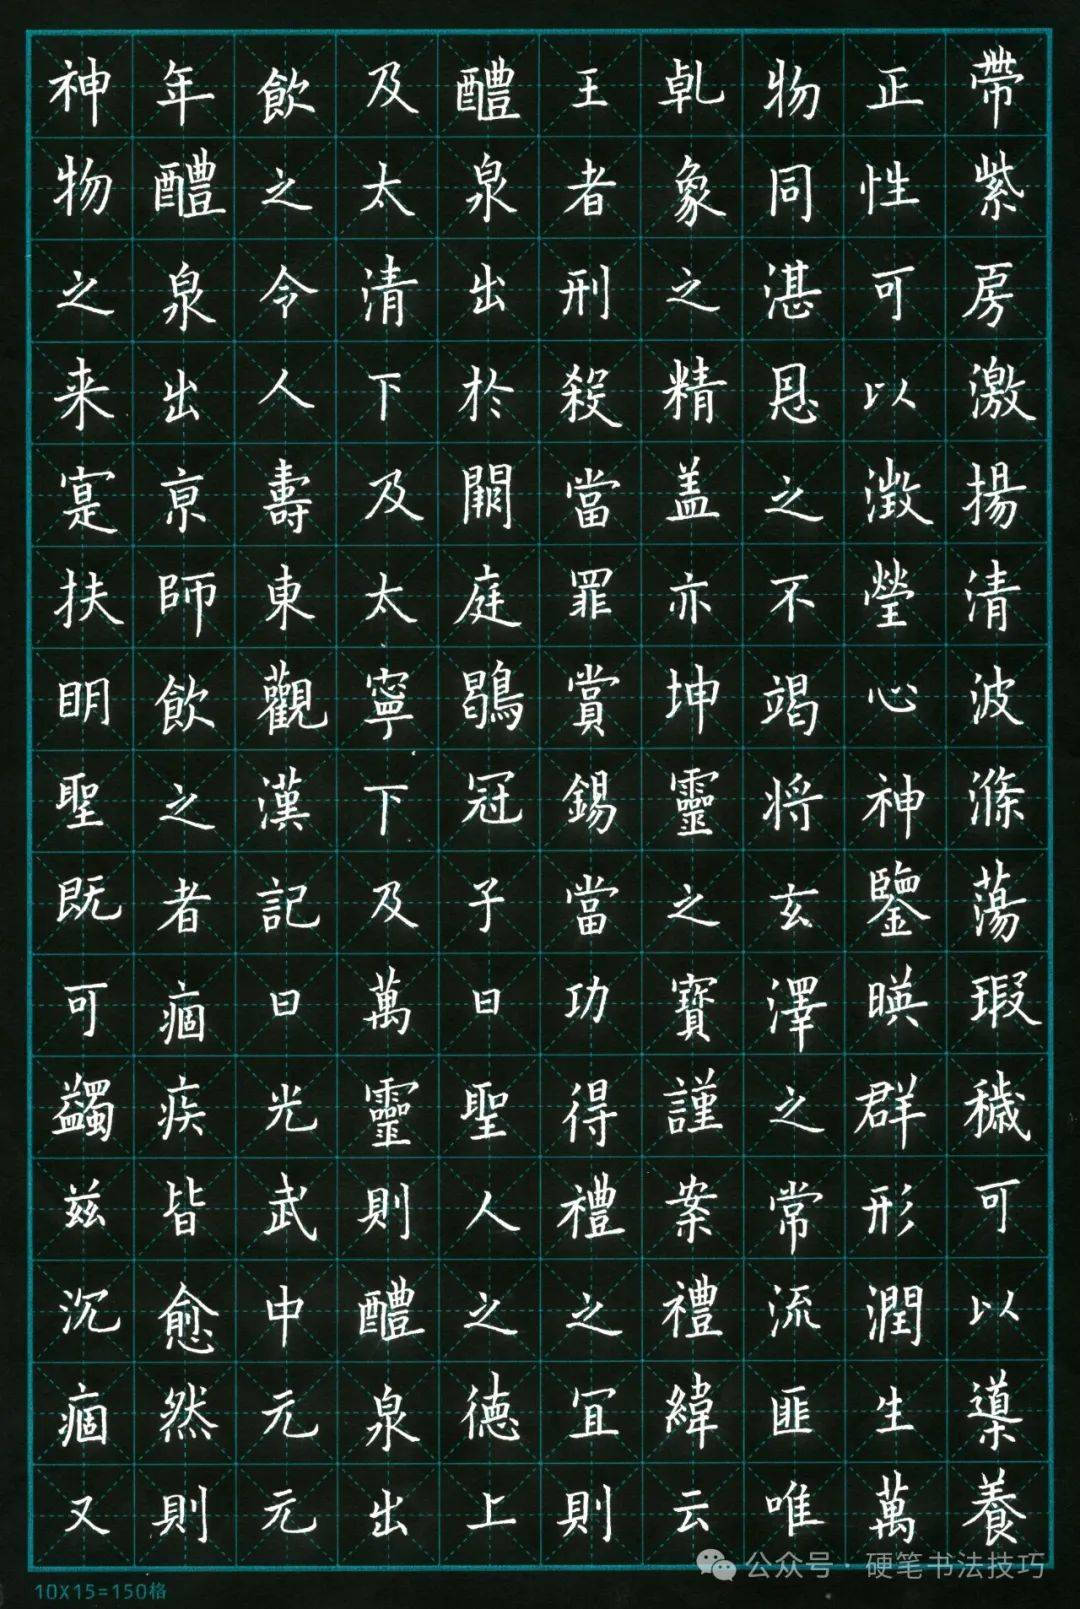 帶紫房激揚清波滌蕩瑕穢可以導養
正性可以澂瑩心神鑒暎群形潤生萬
物同湛恩之不竭將玄澤之常流匪唯
乹象之精盖亦坤靈之寶謹案禮緯云
王者刑殺當罪賞錫當功得禮之宜則
醴泉出於闕庭鶡冠子曰聖人之德上
及太清下及太寧下及萬靈則醴泉出
飲之令人壽東觀漢記曰光武中元元
年醴泉出京師飲之者痼疾皆愈然則
神物之来寔扶明聖既可蠲兹沉痼又
10X15=150格
公众号·硬笔书法技巧